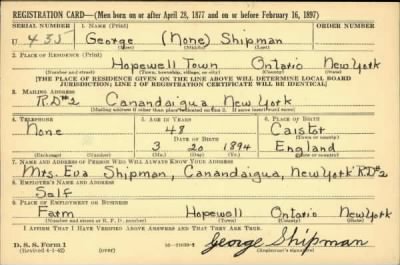 REGISTRATION CARD—(Men born on or after April 28, 1877 and on or before February 16, 1897)
SERIAL NUMBER 1. NAME (Print) ORDER NUMBER
U 435 George (None) Shipman
(First) (Middle) (Last)
2. PLACE OF RESIDENCE (Print)
Hopewell Town Ontario New York
(Number and street) (Town, township, village, or city) (County) (State)
[THE PLACE OF RESIDENCE GIVEN ON THE LINE ABOVE WILL DETERMINE LOCAL BOARD
JURISDICTION; LINE 2 OF REGISTRATION CERTIFICATE WILL BE IDENTICAL]
3. MAILING ADDRESS
R.D.#2 Canandaigua New York
[Mailing address if other than place indicated on line 2. If same insert word same]
4. TELEPHONE 5. AGE IN YEARS 6. PLACE OF BIRTH
None 48 Caistor
DATE OF BIRTH (Town or county)
3 20 1894 England
(Exchange) (Number) (Mo.) (Day) (Yr.) (State or country)
7. NAME AND ADDRESS OF PERSON WHO WILL ALWAYS KNOW YOUR ADDRESS
Mrs. Eva Shipman, Canandaigua, New York R.D#2
8. EMPLOYER'S NAME AND ADDRESS
Self
9. PLACE OF EMPLOYMENT OR BUSINESS
Farm Hopewell Ontario New York
(Number and street or R. F. D. number) (Town) (County) (State)
I AFFIRM THAT I HAVE VERIFIED ABOVE ANSWERS AND THAT THEY ARE TRUE.
D. S. S. Form 1
(Revised 4-1-42) (over) George Shipman
(Registrant's signature)